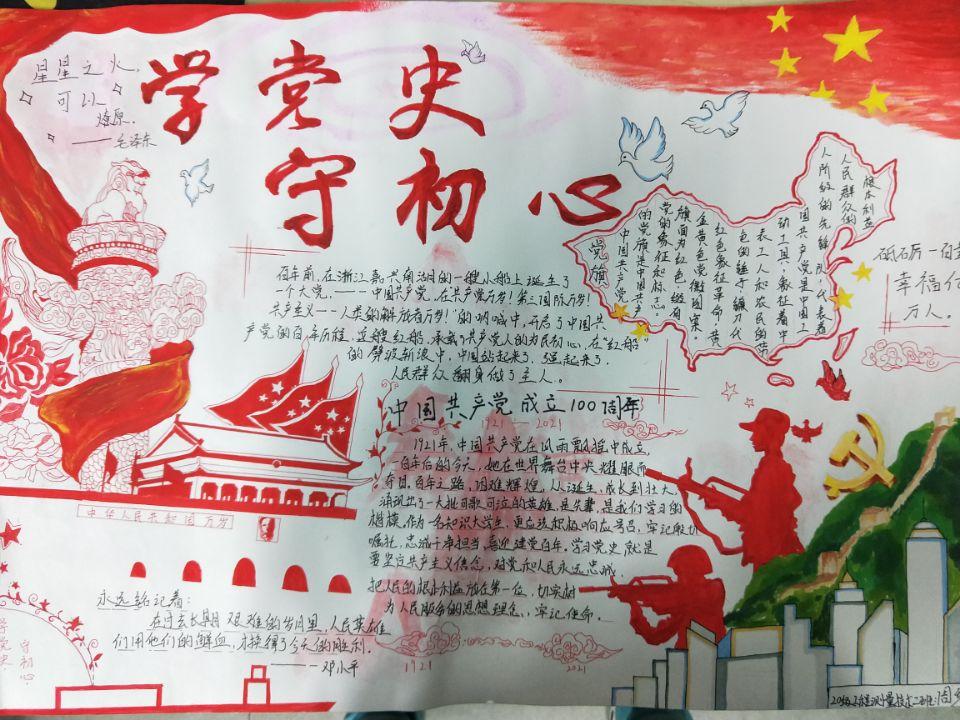 星星之火，
可以
燎原。
——毛泽东
学党史
守初心
百年前，在浙江嘉兴南湖的一艘小船上诞生了
一个大党，——中国共产党，在共产党万岁！第三国际万岁！
共产主义——人类的解放者万岁！"的呐喊中，开启了中国共
产党的百年历程，这艘红船，承载了共产党人的为民初心，在"红船
的劈波斩浪中，中国站起来了，强起来了，
人民群众翻身做了主人。
党旗
中国共产党
的党旗是中国共产
党的象征和标志。
旗面为红色，缀有
金黄色党徽图案。
红色象征革命，黄
色的锤子、镰刀代
表工人和农民的劳
动工具，象征着中
国共产党是中国工
人阶级的先锋队，代表着
人民群众的
根本利益
砥砺一百
幸福
万人。
中国共产党成立100周年
1921——2021
1921年，中国共产党在风雨飘摇中成立，
一百年后的今天，她在世界舞台中央耀眼而
夺目，百年之路，困难辉煌，从诞生，成长到壮大，
涌现出了一大批可歌可泣的英雄，是先辈，是我们学习的
楷模，作为一名知识大学生，更应该积极响应号召，牢记殷切
嘱托，忠诚干净担当，喜迎建党百年。学习党史就是
要坚定共产主义信念，对党和人民永远忠诚，
把人民的根本利益放在第一位，切实树
为人民服务的思想理念，牢记使命。
1921 2021
中华人民共和国万岁
永远铭记着：
在于玄长期艰难的岁月里，人民英雄
们用他们的鲜血，才换得了今天的胜利。
——邓小平
学党史
守初心
20级工程测量技术二班：周